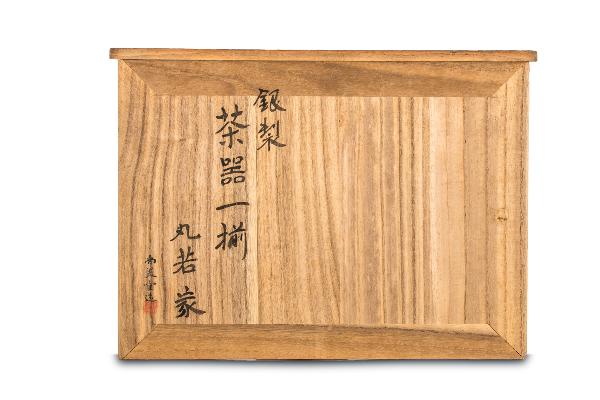 銀製
茶器一揃
丸若家